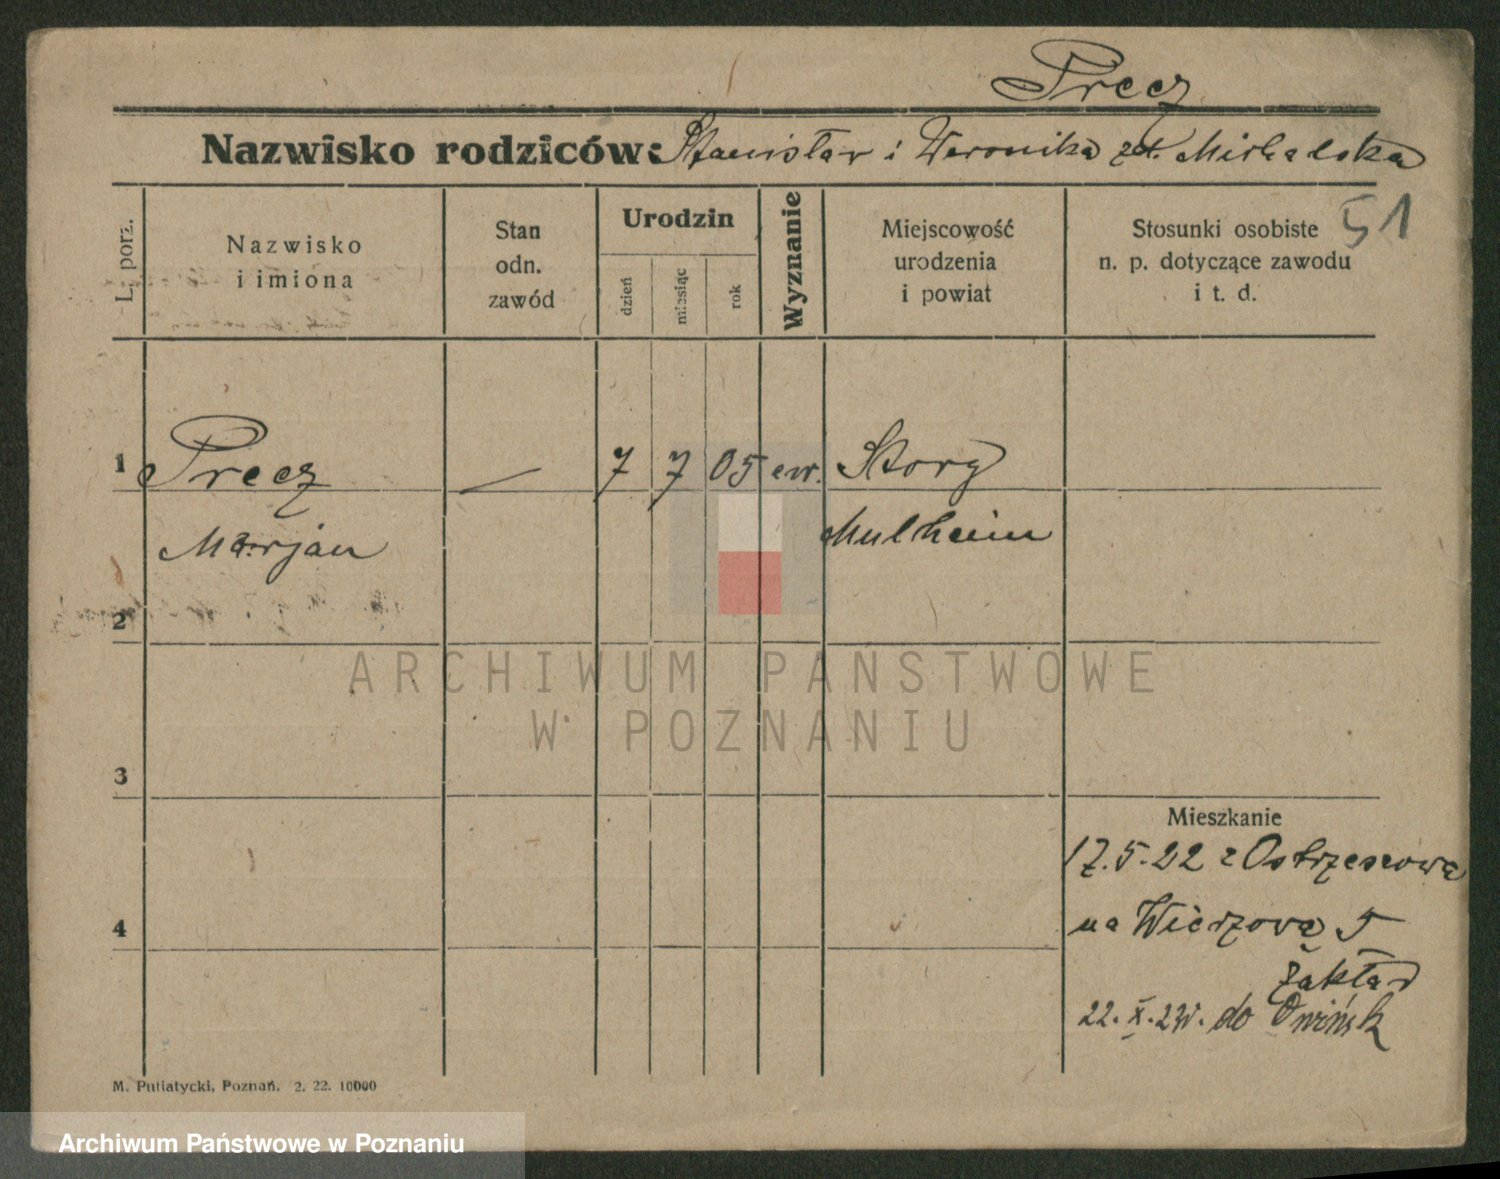 Precz
Nazwisko rodziców: Stanisław i Weronika Michalska
51
L. porz.
Nazwisko
i imiona
Stan
odn.
zawód
Urodzin
dzień
miesiąc
rok
Wyznanie
Miejscowość
urodzenia
i powiat
Stosunki osobiste
n. p. dotyczące zawodu
i t. d.
1
Precz
Marjan
—
7
7
05
ew.
Mulheim
2
3
4
ARCHIWUM PAŃSTWOWE
W POZNANIU
Mieszkanie
17.5.22 z Ostrzeszowa
na 5
Zakład
22.X.23r. do Owińsk
M. Putiatycki, Poznań. 2. 22. 10000
Archiwum Państwowe w Poznaniu